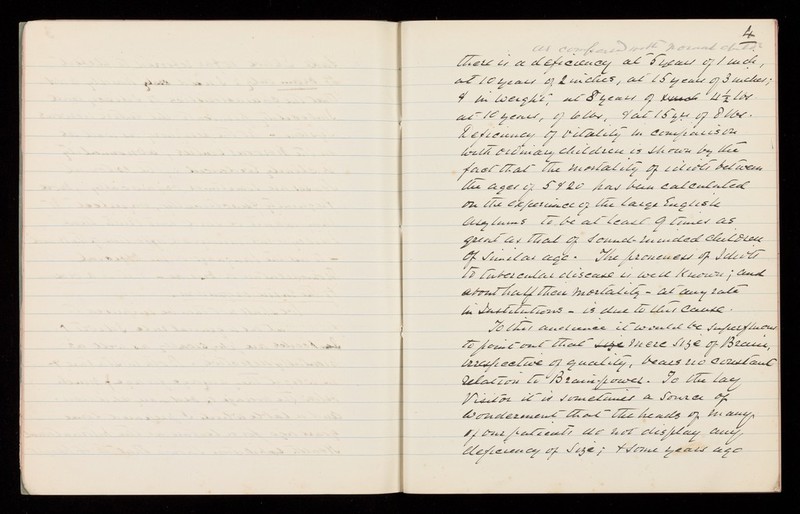 4
as compared with normal child:
there is a deficiency at 5 years of 1 inch,
at 10 years of 2 inches, at 15 years of 3 inches;
& in weight, at 5 years of 4½ lbs
at 10 years, of 6 lbs, & at 15 yrs of 8 lbs.
Deficiency of Vitality in comparison
with ordinary children is shown by the
fact that the mortality of idiots between
the ages of 5 & 20 has been calculated
on the experience of the large English
Asylums to be at least 9 times as
great as that of sound-minded children
of similar age. The proneness of Idiots
to tubercular disease is well known; and
about half their mortality - at any rate
in Institutions - is due to this cause.
To this audience it would be superfluous
to point out that size mere size of Brain,
irrespective of quality, bears no constant
relation to Brain-power. To the lay
Visitor it is sometimes a source of
wonderment that the heads of many
of our patients do not display any
deficiency of size; & some years ago